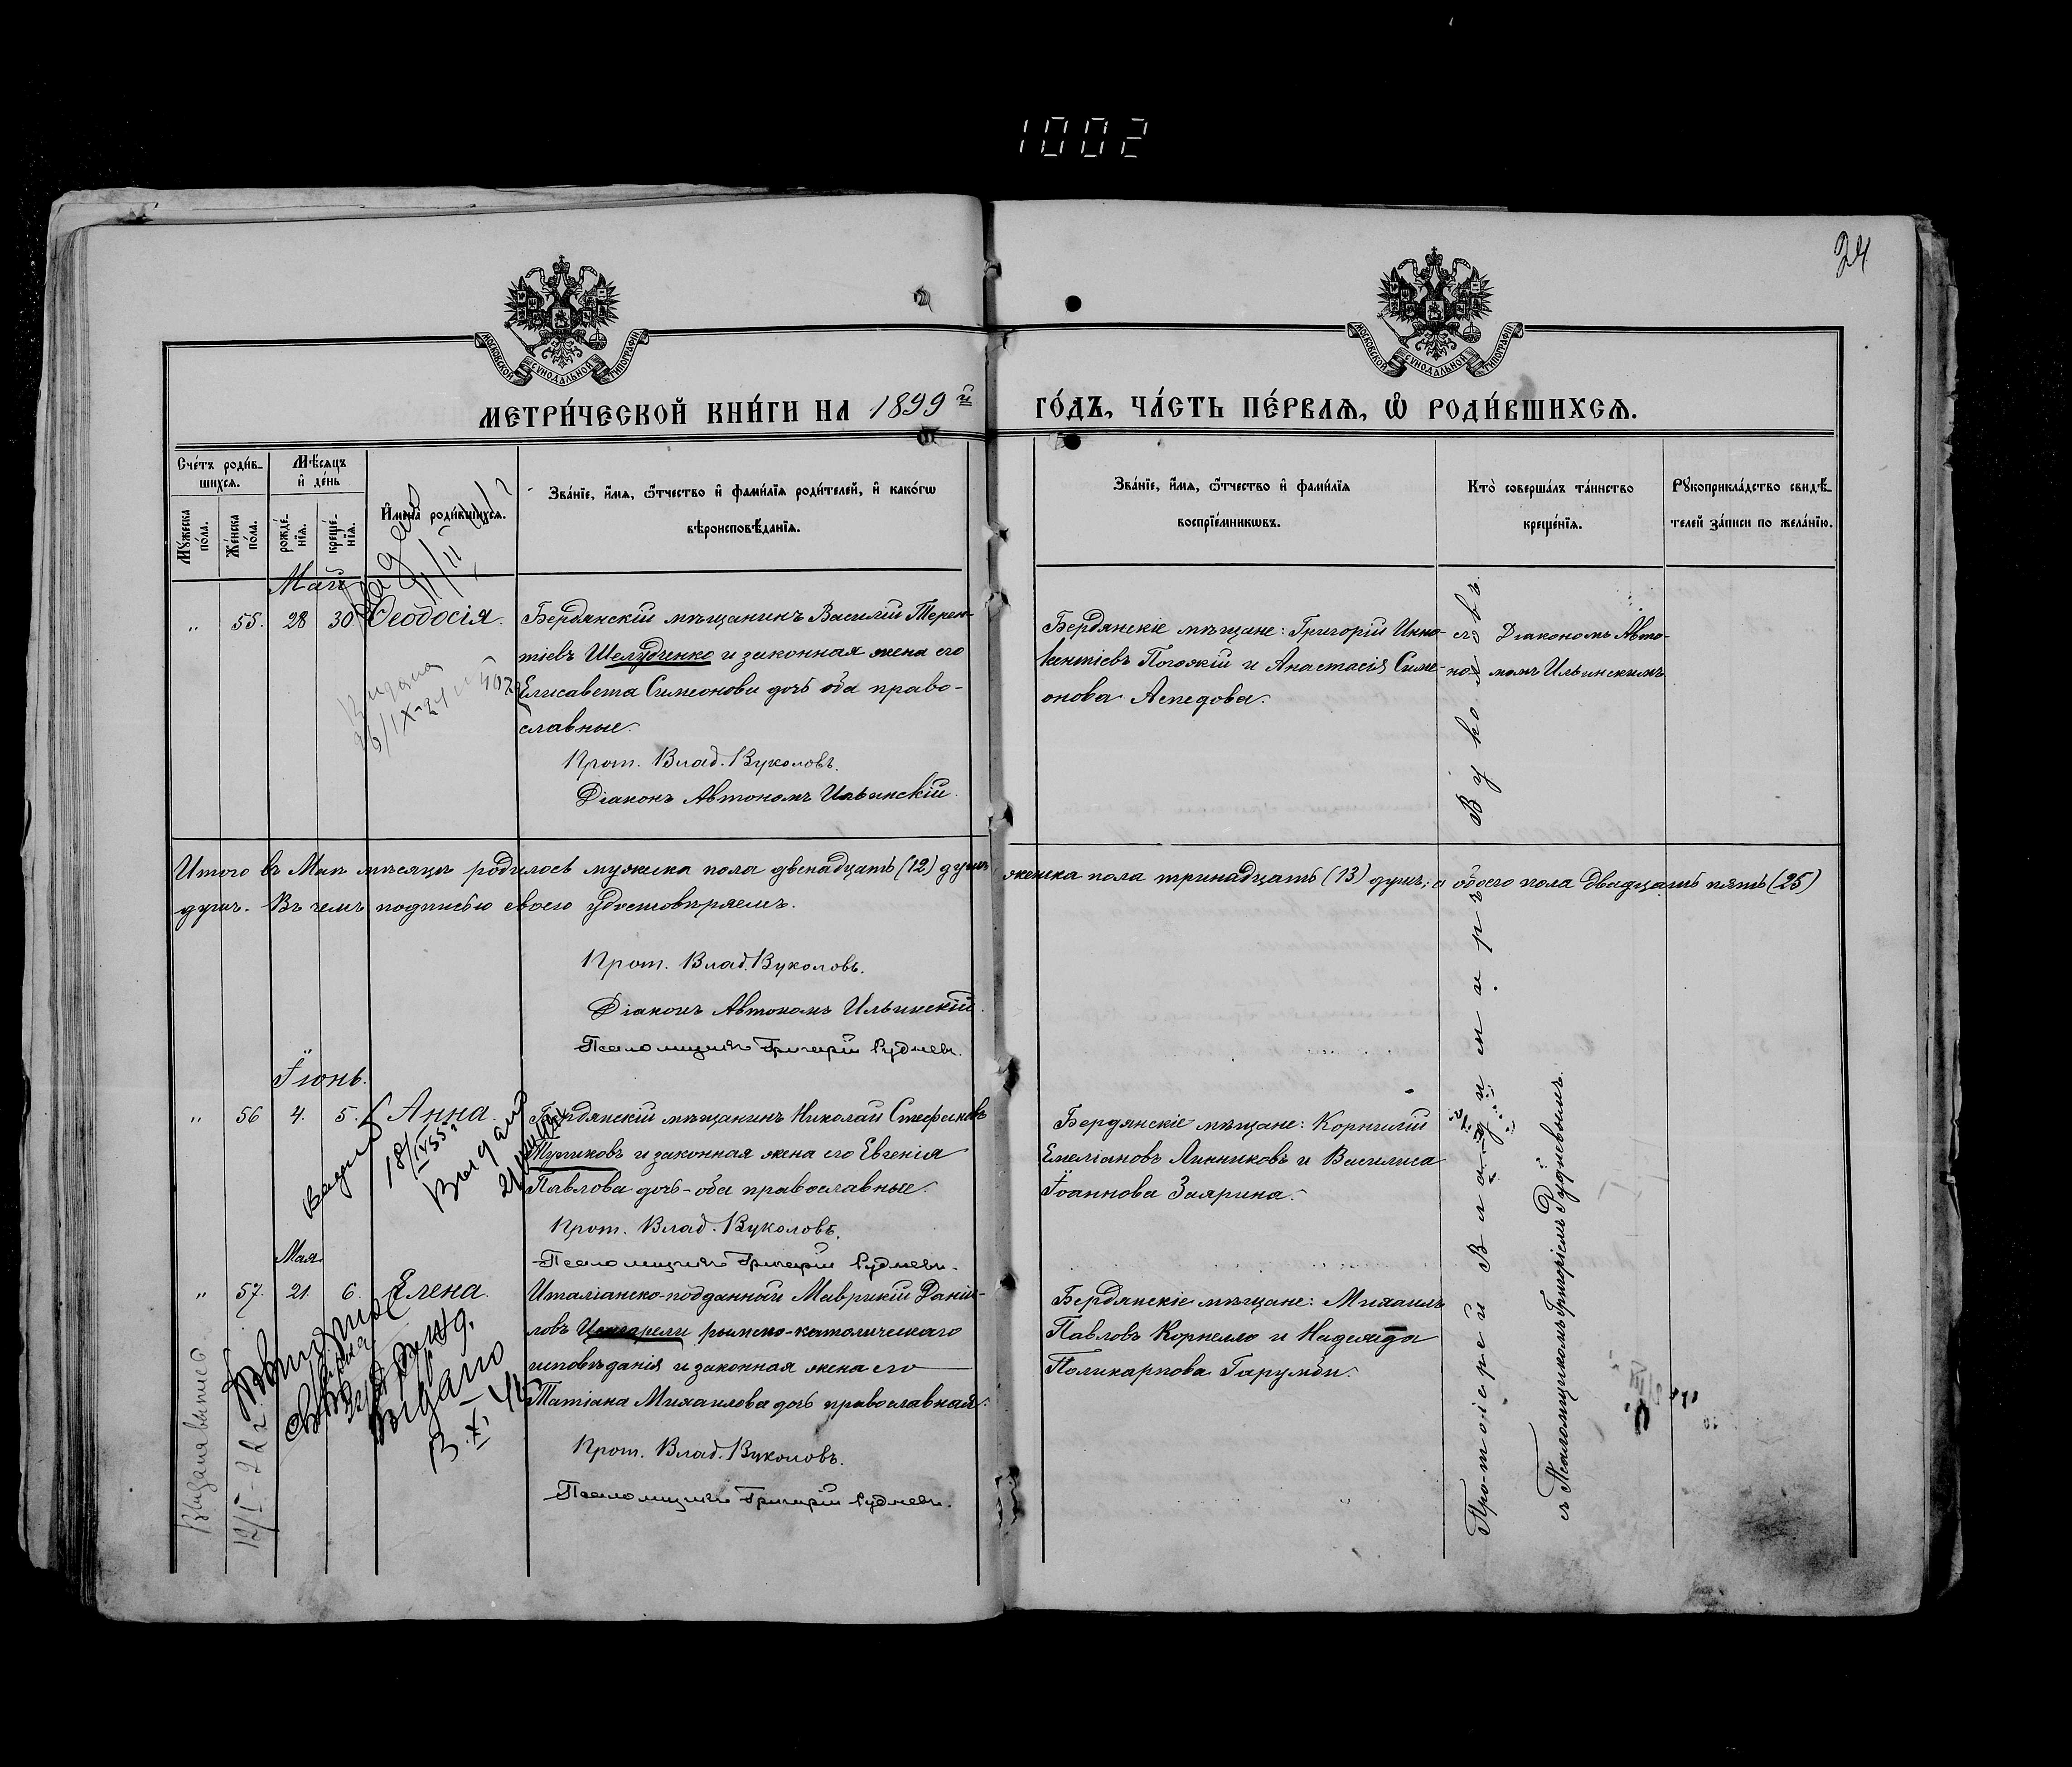 1002
24
МОСКОВСКОЙ СѴНОДАЛЬНОЙ ТИПОГРАФІИ
МОСКОВСКОЙ СѴНОДАЛЬНОЙ ТИПОГРАФІИ
МЕТРИ́ЧЕСКОЙ КНИ́ГИ НА 1899й ГО́ДЪ, ЧА́СТЬ ПЕ́РВАѦ, Ѡ҆ РОДИ́ВШИХСѦ.
Сче́тъ роди́в-
шихсѧ.
Мꙋ́жеска по́ла.
Же́нска по́ла.
Мѣ́сѧцъ
и҆ де́нь
рожде́-
нїѧ.
креще́-
нїѧ.
И҆мена̀ роди́вшихсѧ.
Зва́нїе, и҆́мѧ, ѻ҆́тчество и҆ фами́лїѧ роди́телей, и҆ како́гѡ
вѣроисповѣ́данїѧ.
Зва́нїе, и҆́мѧ, ѻ҆́тчество и҆ фами́лїѧ
воспрїе́мникѡвъ.
Кто̀ соверша́лъ та́инство
креще́нїѧ.
Рꙋкоприкла́дство свидѣ́-
телей за́писи по жела́нїю.
Май
„ 55. 28 30 Ѳеодосія.
Бердянскій мѣщанинъ Василій Терен-
тіевъ Шелудченко и законная жена его
Елисавета Симеонова дочь оба право-
славные.
Прот. Влад. Вуколовъ.
Діаконъ Автономъ Ильинскій.
Бердянскіе мѣщане: Григорій Инно-
кентіевъ Погожій и Анастасія Симе-
онова Аспедова.
съ Діакономъ Авто-
но- момъ Ильинскимъ
Выдана
Итого въ Маѣ мѣсяцѣ родилось мужеска пола двенадцать (12) душъ женска пола тринадцать (13) душъ; а обоего пола двадцать пять (25)
душъ. Въ чемъ подписью своею удостовѣряемъ.
Прот. Влад. Вуколовъ.
Діаконъ Автономъ Ильинскій.
Псаломщикъ Григорій Рудневъ.
Іюнь.
„ 56 4. 5. Анна.
Бердянскій мѣщанинъ Николай Стефановъ
Тупиковъ и законная жена его Евгенія
Павлова дочь - оба православные.
Прот. Влад. Вуколовъ.
Псаломщикъ Григорій Рудневъ.
Бердянскіе мѣщане: Корнилій
Емеліановъ Линниковъ и Василиса
Іоаннова Заярина.
18/IX 55г.
Выдано
Мая
„ 57. 21. 6. Елена.
Италіанско-подданный Маврикій Даніи-
ловъ римско-католическаго
исповѣданія и законная жена его
Татіана Михаилова дочь православная.
Прот. Влад. Вуколовъ.
Псаломщикъ Григорій Рудневъ.
Бердянскіе мѣщане: Михаилъ
Павловъ Корнелло и Надежда
Поликарпова Гарумби.
Выдано
Протоіерей Владиміръ Вуколовъ
съ Псаломщикомъ Григоріемъ Рудневымъ.